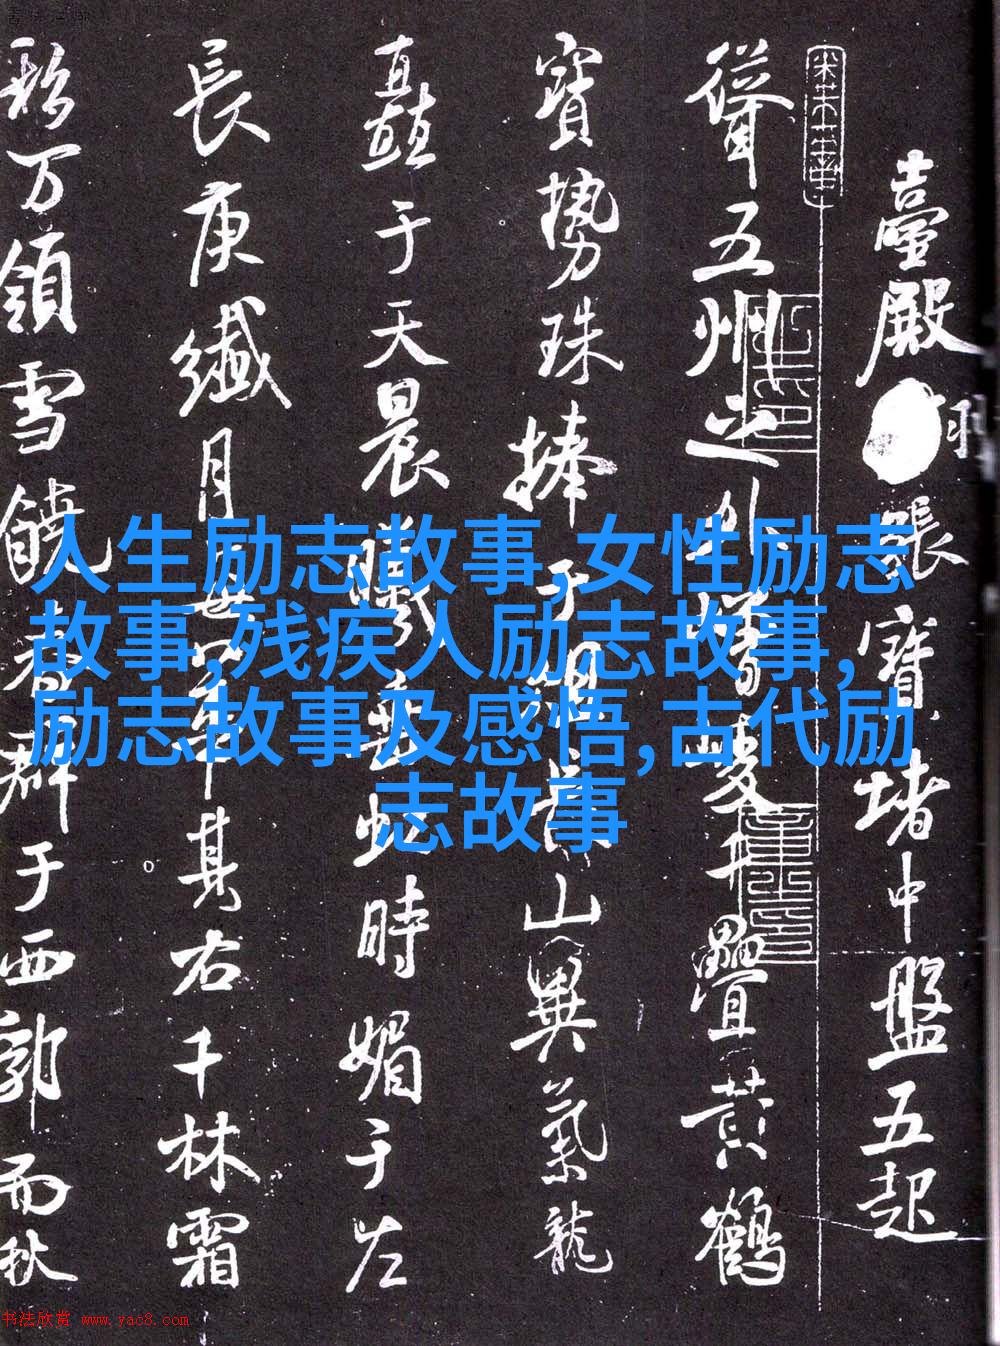 臺殿
張寶堵中盤五起
聳五州之外
疊黄鶴
寶勢珠捧于
山異氣龍
矗于天晨曦
時媚于左
長庚纎月
其右千林霜
彩万領雪饒
群于西郭而秋
人生励志故事,女性励志
故事,残疾人励志故事,
励志故事及感悟,古代励
志故事
书法欣赏 www.yac8.com